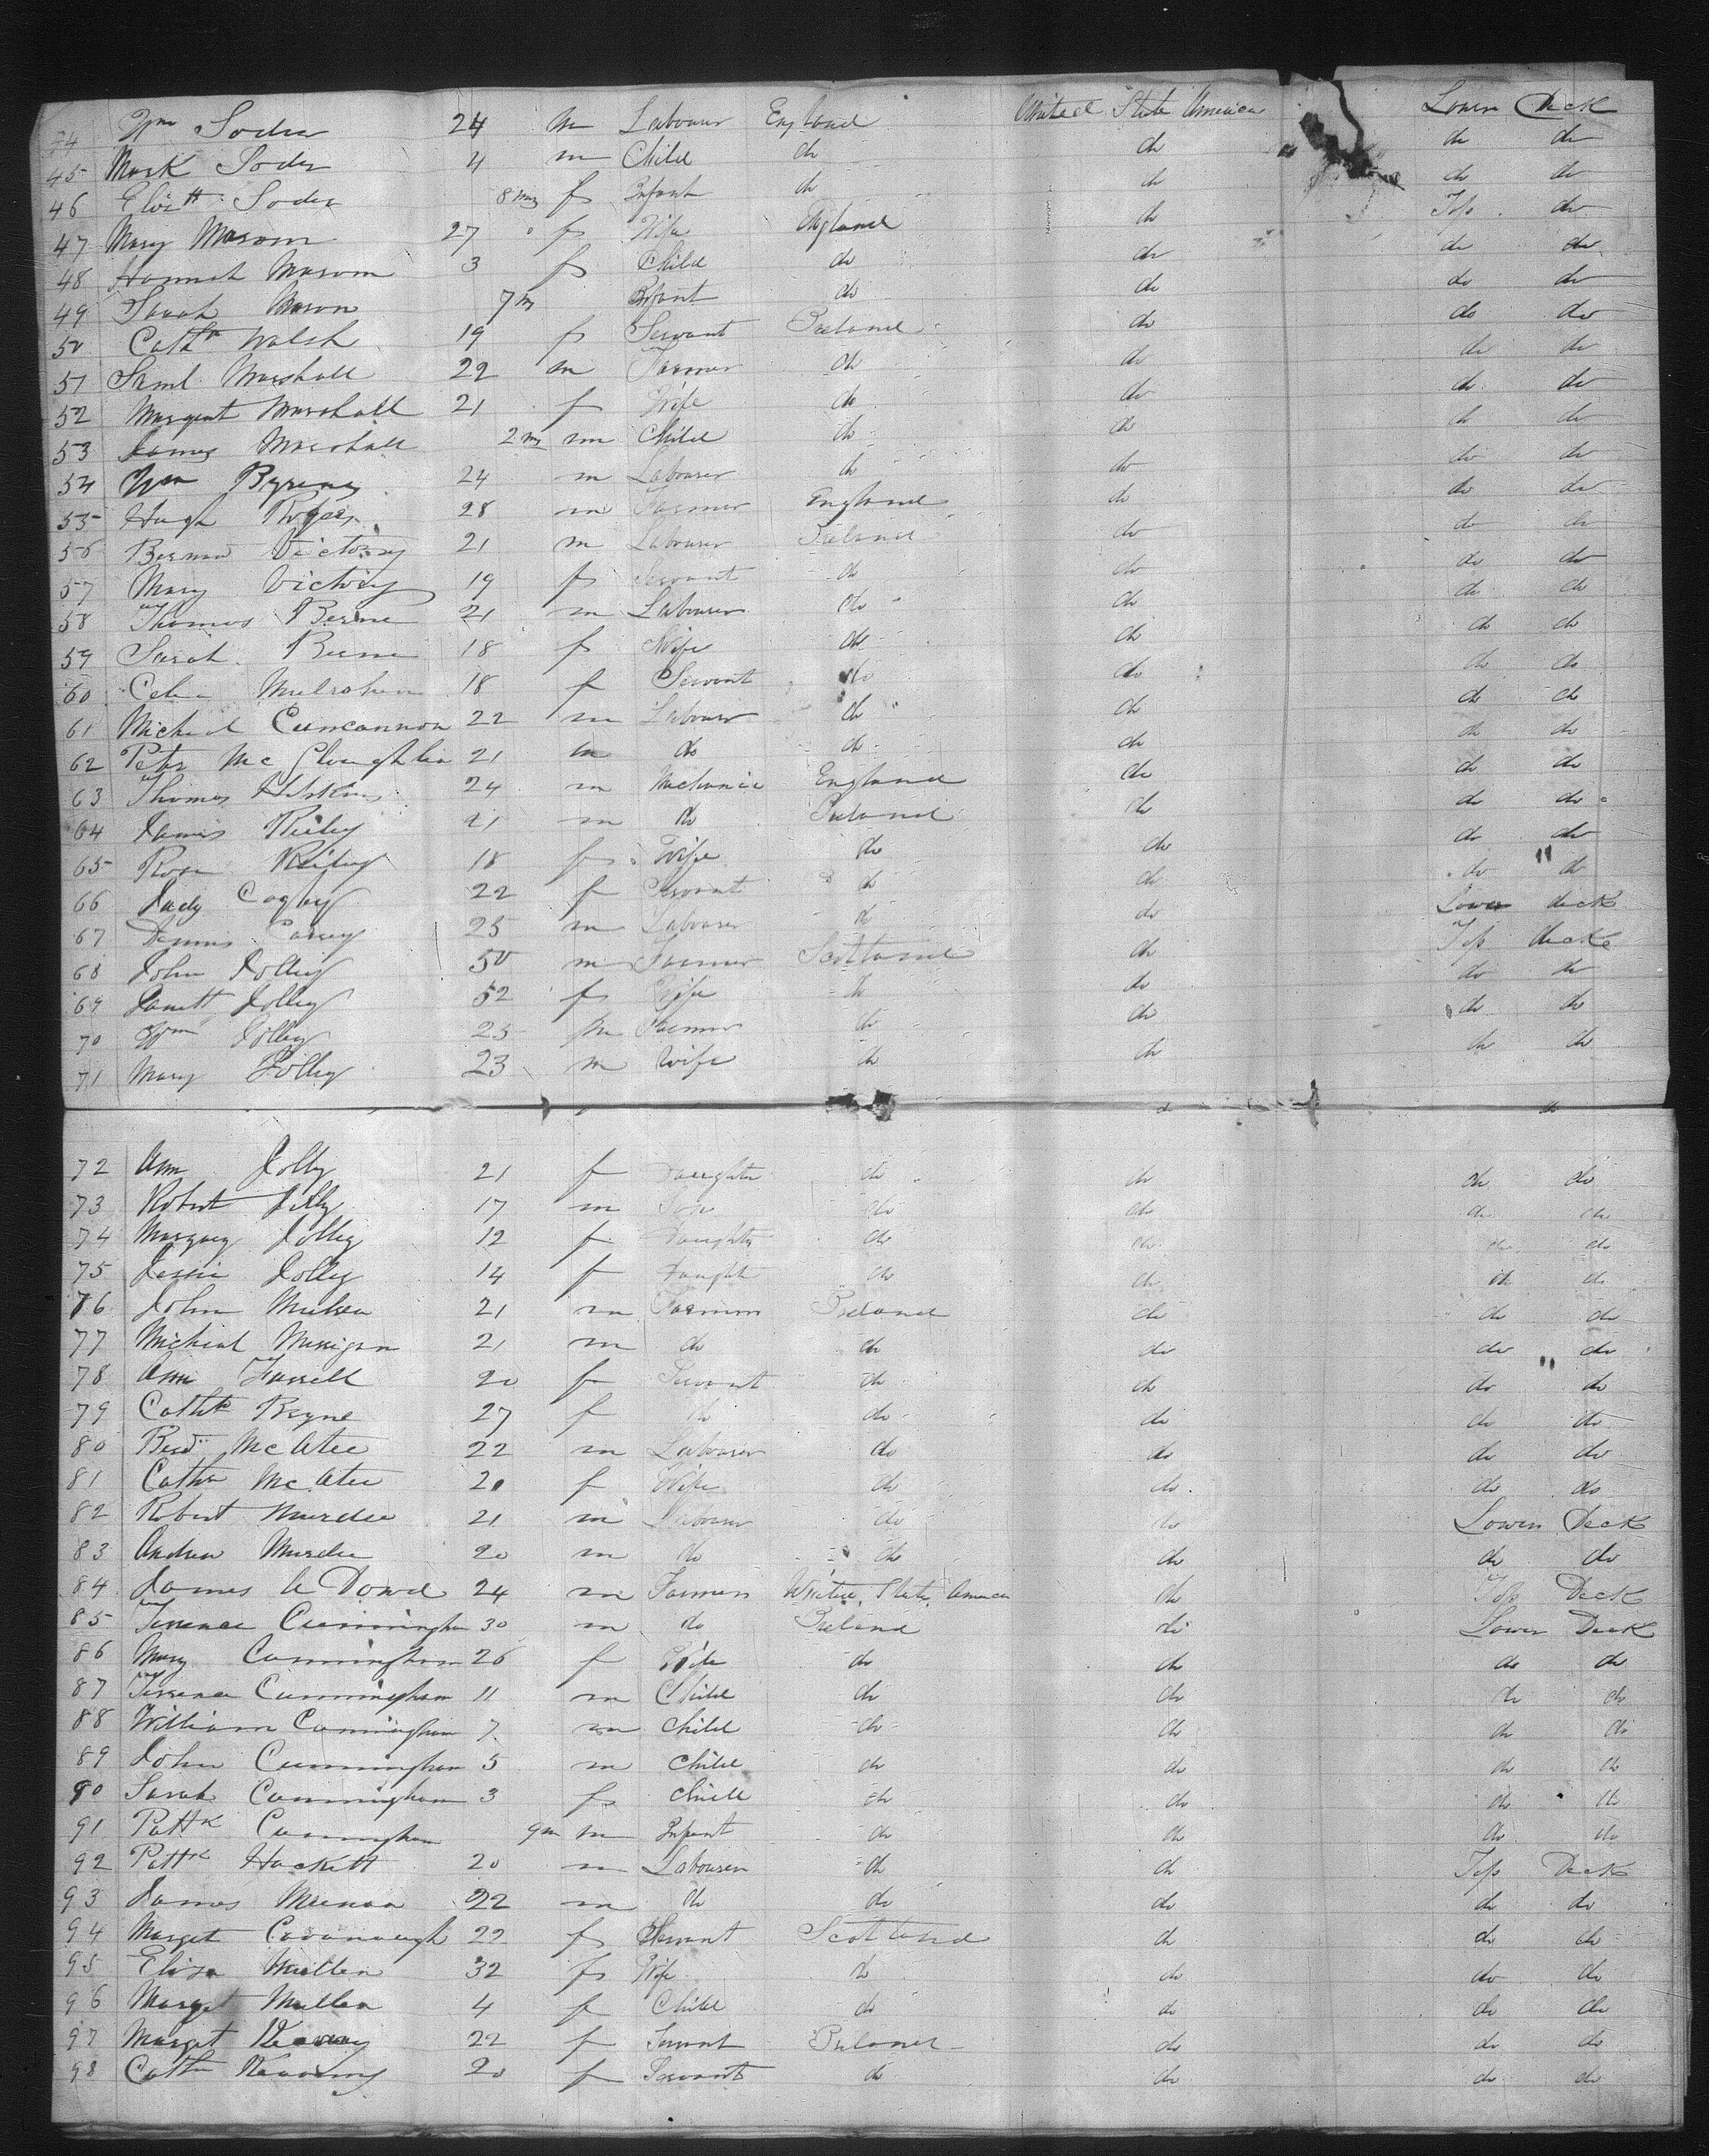 Wm 24 m Labourer England United State America Lower Deck
45 Mark Soder 4 m Child do do do do
46 Elizth Soder 8 ms f Infant do do do do
47 Mary Mason 27 f Wife England do Top do
48 Hannah Mason 3 f Child do do do do
49 Sarah Mason 7 m Infant do do do do
50 Cathn Walsh 19 f Servant Ireland do do do
51 Saml Marshall 22 m Farmer do do do do
52 Margent Marshall 21 f Wife do do do do
53 James Marshall 2 ms m Child do do do do
54 Wm 24 m Labourer do do do do
55 Hugh 28 m Farmer England do do do
56 Bernard Victory 21 m Labourer Ireland do do do
57 Mary Victory 19 f Servant do do do do
58 Thomas Berne 21 m Labourer do do do do
59 Sarah Berne 18 f Wife do do do do
60 18 f Servant do do do do
61 Michael Cuncannon 22 m Labourer do do do do
62 Peter Mc Cloughlin 21 m do do do do do
63 Thomas 24 m Mechanic England do do do
64 James Reiley 21 m do Ireland do do do
65 Rose Reiley 18 f Wife do do do do
66 Judy 22 f Servant do do do do
67 Dennis 25 m Labourer do do Lower deck
68 John Jolley 50 m Farmer Scotland do Top deck
69 Janett Jolley 52 f Wife do do do do
70 Wm Jolley 25 m Farmer do do do do
71 Mary Jolley 23 m Wife do do do do
72 Ann Jolly 21 f Daughter do do do do
73 Robert Jolly 17 m Son do do do do
74 Margary Jolley 12 f Daughtr do do do do
75 Jessie Jolley 14 f Daught do do do do
76 John 21 m Farmer Ireland do do do
77 Michael Merrigan 21 m do do do do do
78 Ann Farrell 20 f Servant do do do do
79 Cathn Beyne 27 f do do do do do
80 Mc Atee 22 m Labourer do do do do
81 Cathn Mc Atee 20 f Wife do do do do
82 Robert Murdee 21 m Labourer do do Lower Deck
83 Andrew Murdee 20 m do do do do do
84 James 24 m Farmer United State America do Top Deck
85 Terrence Cunningham 30 m do Ireland do Lower Deck
86 Mary Cunningham 26 f Wife do do do do
87 Terrence Cunningham 11 m Child do do do do
88 William Cunningham 7 m Child do do do do
89 John Cunningham 5 m Child do do do do
90 Sarah Cunningham 3 f Child do do do do
91 Pattk Cunningham 9m m Infant do do do do
92 Pattk Hackett 20 m Labourer do do Top Deck
93 James 22 m do do do do do
94 Marget Cavanaugh 22 f Servant Scotland do do do
95 Eliza Mullen 32 f Wife do do do do
96 Marget Mullen 4 f Child do do do do
97 Marget 22 f Servant Ireland do do do
98 Cathn 20 f Servant do do do do